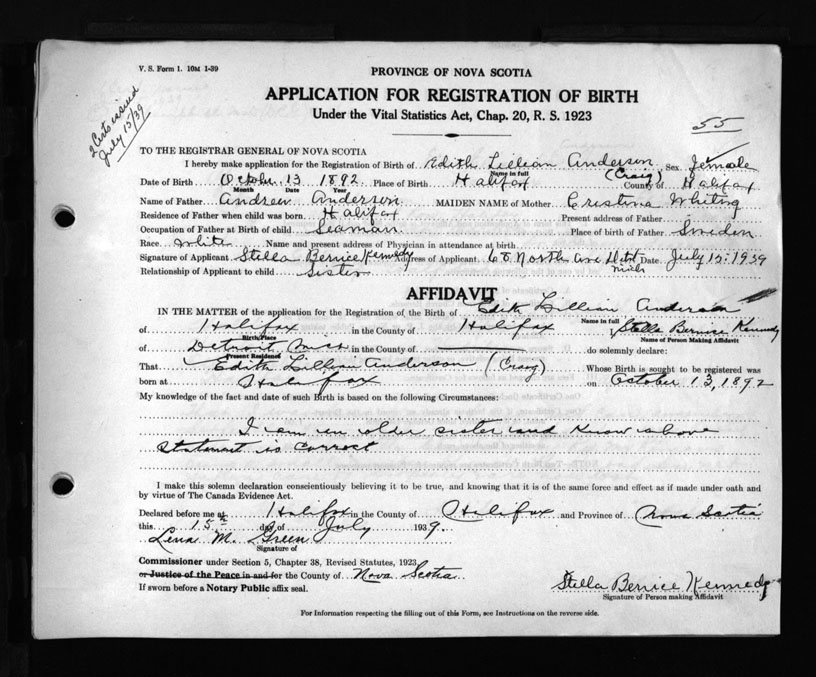 V. S. Form 1. 10M 1-39
2 Certs issued
July 15/39
PROVINCE OF NOVA SCOTIA
APPLICATION FOR REGISTRATION OF BIRTH
Under the Vital Statistics Act, Chap. 20, R. S. 1923
55
TO THE REGISTRAR GENERAL OF NOVA SCOTIA
I hereby make application for the Registration of Birth of Edith Lillian Anderson Sex female
Name in full (Craig)
Date of Birth October 13 1892 Place of Birth Halifax County of Halifax
Month Date Year
Name of Father Andrew Anderson MAIDEN NAME of Mother Cristina Whiting
Residence of Father when child was born Halifax Present address of Father
Occupation of Father at Birth of child Seaman Place of birth of Father Sweden
Race white Name and present address of Physician in attendance at birth
Signature of Applicant Stella Bernice Kennedy Address of Applicant North Ave Detroit Mich Date July 15-1939
Relationship of Applicant to child Sister
AFFIDAVIT
IN THE MATTER of the application for the Registration of the Birth of Edith Lillian Anderson
Name in full
of Halifax in the County of Halifax Stella Bernice Kennedy
Birth Place Name of Person Making Affidavit
of Detroit Mich in the County of do solemnly declare:
Present Residence
That Edith Lillian Anderson (Craig) Whose Birth is sought to be registered was
born at Halifax on October 13, 1892
My knowledge of the fact and date of such Birth is based on the following Circumstances:
I am an older sister and know above
statement is correct
I make this solemn declaration conscientiously believing it to be true, and knowing that it is of the same force and effect as if made under oath and
by virtue of The Canada Evidence Act.
Declared before me at Halifax in the County of Halifax and Province of Nova Scotia
this 15th day of July 1939.
Lena M. Green
Signature of
Commissioner under Section 5, Chapter 38, Revised Statutes, 1923
or Justice of the Peace in and for the County of Nova Scotia
If sworn before a Notary Public affix seal.
Stella Bernice Kennedy
Signature of Person making Affidavit
For Information respecting the filling out of this Form, see Instructions on the reverse side.